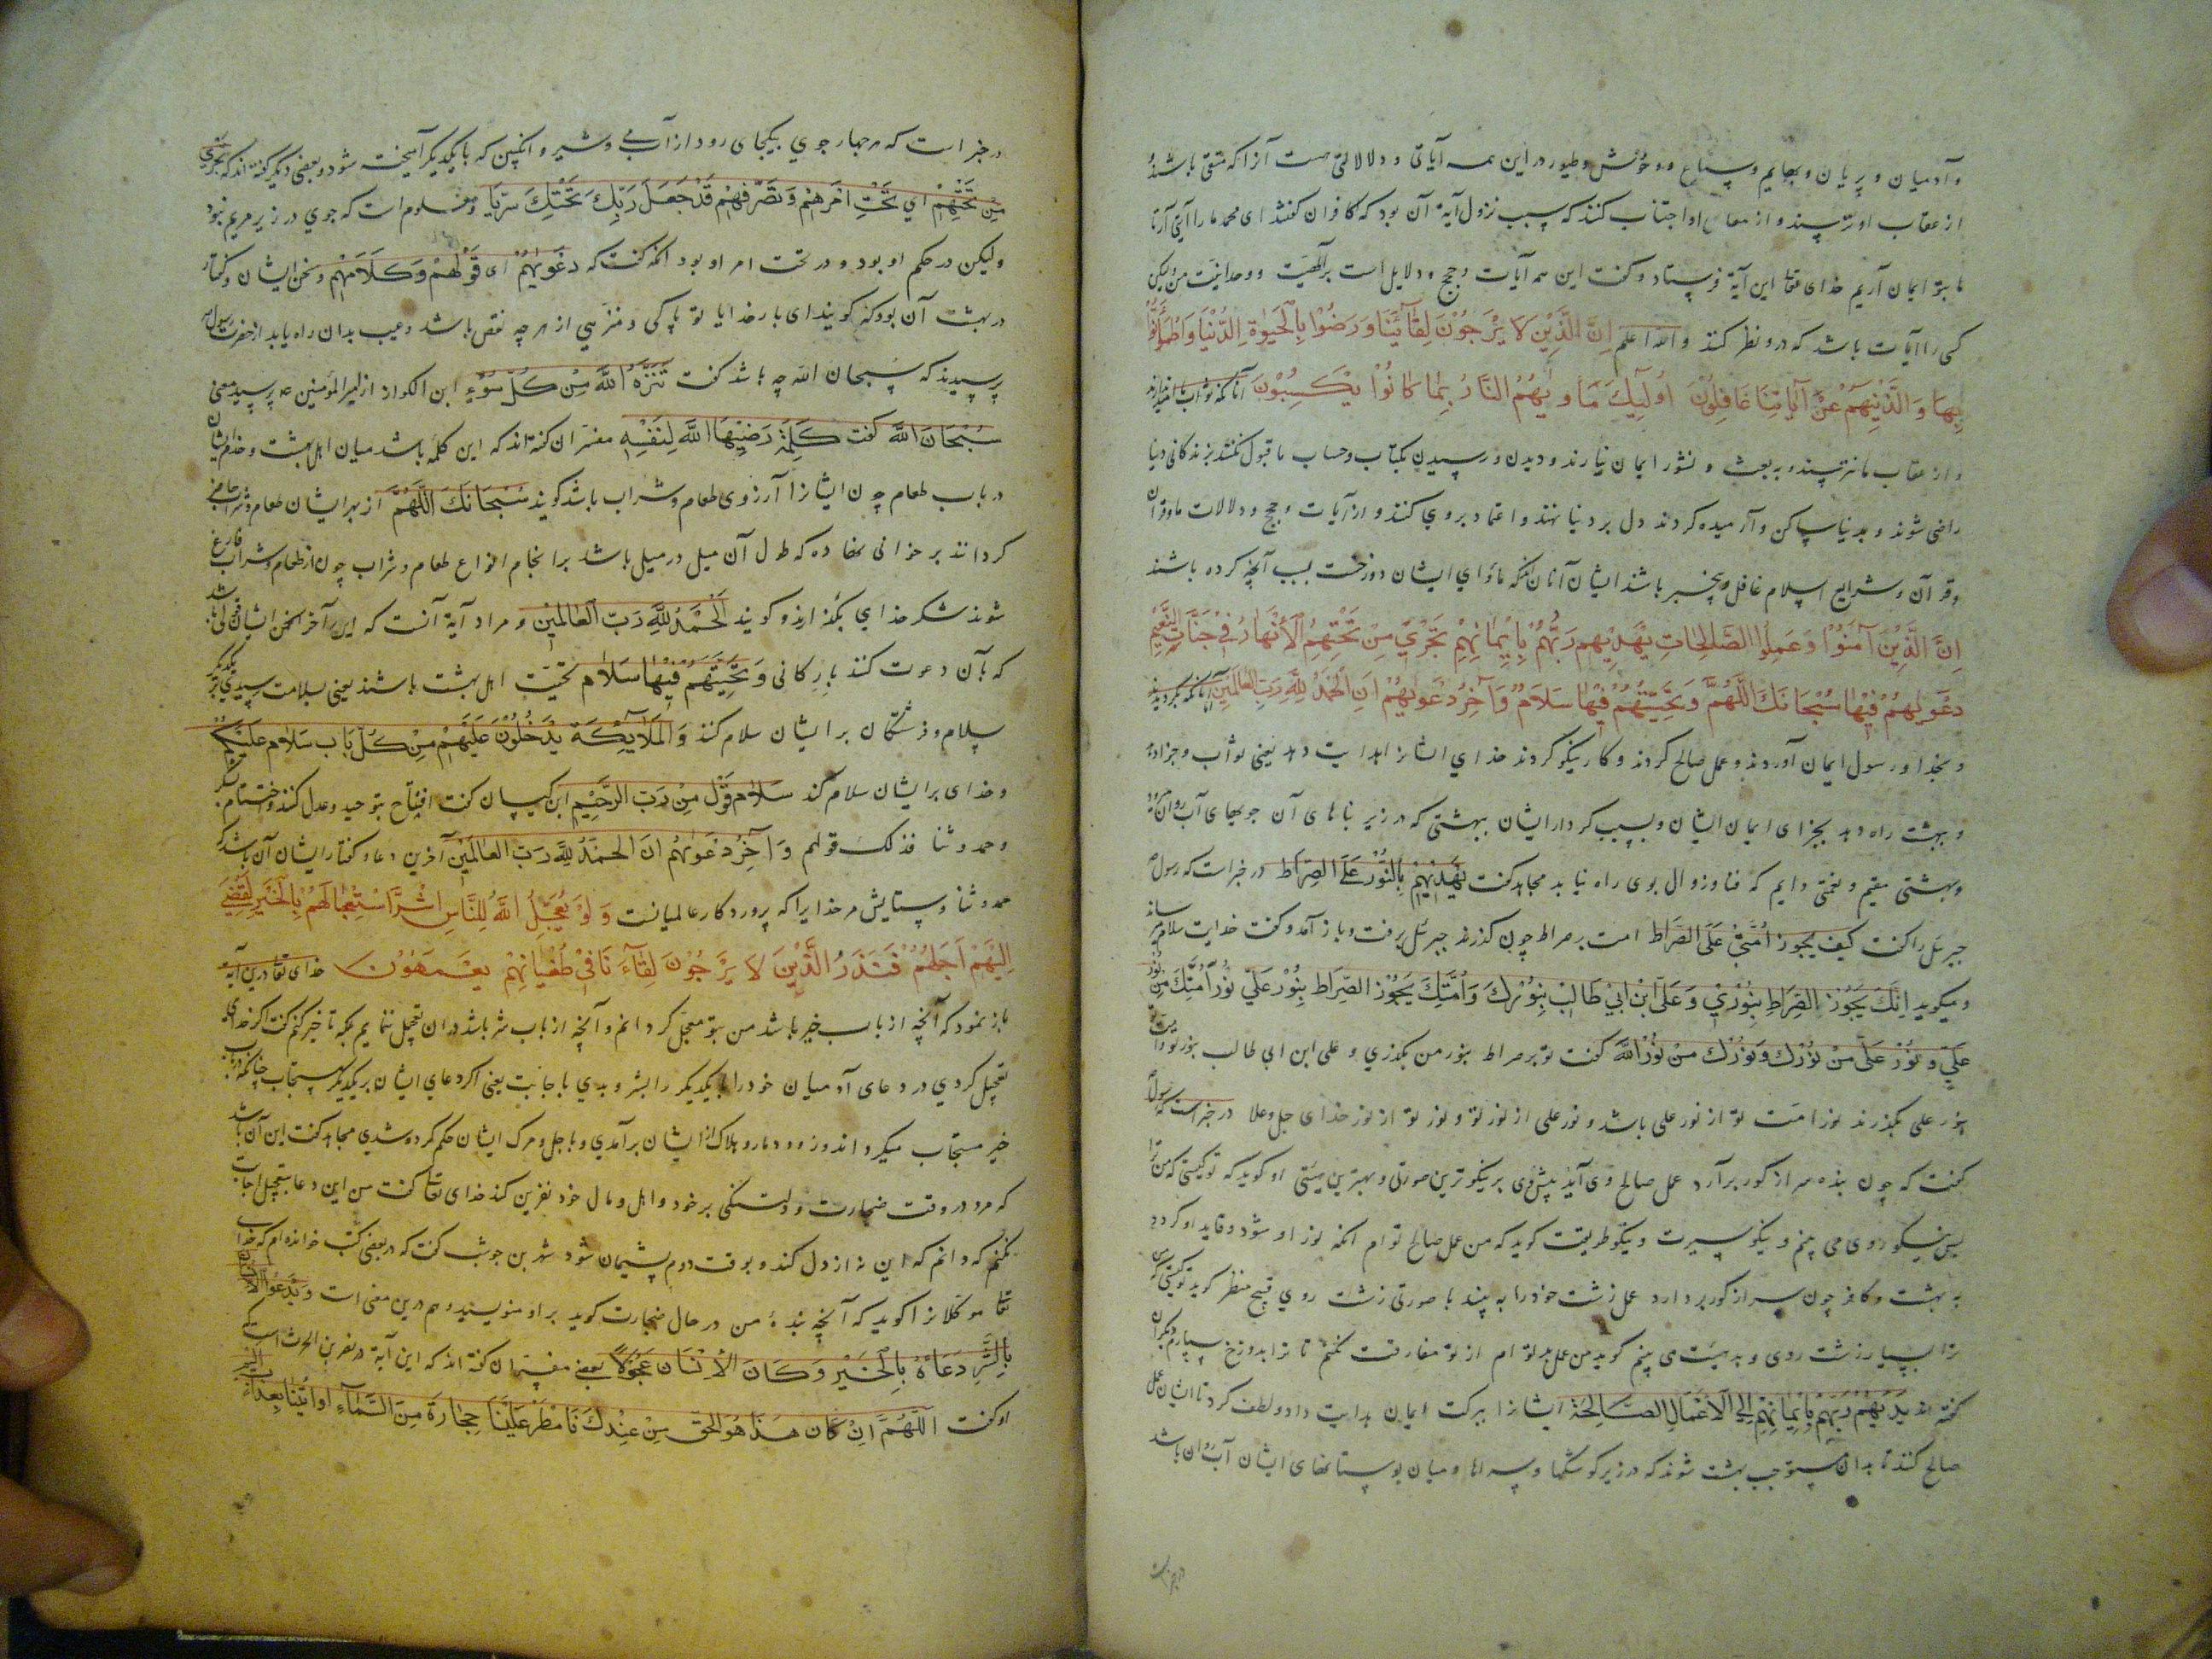 و آدمیان و پریان و بهایم و سباع و وحوش و طیور در این همه آیاتی و دلالاتی هست آنرا که متقی باشد
از عقاب او ترسند و از معاصی او اجتناب کنند که سبب نزول آیة آن بود که کافران گفتند ای محمد ما را آیتی آر تا
ما بتو ایمان آریم خدای تعا این آیة فرستاد و گفت این همه آیات و حجج و دلایل است بر الهیت و وحدانیت من ولیکن
کسی را آیات باشد که درو نظر کند والله اعلم اِنَّ الَّذِیْنَ لَا یَرْجُوْنَ لِقَآئَنَا وَرَضُوْا بِالْحَیٰوةِ الدُّنْیَا وَاطْمَأَنُّوْا
بِهَا وَالَّذِیْنَ هُمْ عَنْ آیَاتِنَا غَافِلُوْنَ اُولٰٓئِكَ مَأْوٰیهُمُ النَّارُ بِمَا كَانُوْا یَكْسِبُوْنَ آنانکه ثواب ما
و از عقاب ما نترسند و به بعث و نشور ایمان نیارند و دیدن و رسیدن بکتاب و حساب ما قبول نکنند بزندگانی دنیا
راضی شوند و بدنیا ساکن و آرمیده گردند دل بر دنیا نهند و اعتماد بروی کنند و از آیات و حجج و دلالات ما و قرآن
و قرآن و شرایع اسلام غافل و بیخبر باشند ایشان آنانند که مأوای ایشان دوزخست بسبب آنچه کرده باشند
اِنَّ الَّذِیْنَ آمَنُوْا وَعَمِلُوا الصَّالِحَاتِ یَهْدِیْهِمْ رَبُّهُمْ بِاِیْمَانِهِمْ تَجْرِیْ مِنْ تَحْتِهِمُ الْاَنْهَارُ فِیْ جَنَّاتِ النَّعِیْمِ
دَعْوٰیهُمْ فِیْهَا سُبْحَانَكَ اللّٰهُمَّ وَتَحِیَّتُهُمْ فِیْهَا سَلَامٌ وَآخِرُ دَعْوٰیهُمْ اَنِ الْحَمْدُ لِلّٰهِ رَبِّ الْعَالَمِیْنَ آنانکه بگرویدند
و بخدا و رسول ایمان آوردند و عمل صالح کردند و کار نیکو کردند خدای ایشانرا هدایت دهد یعنی ثواب و جزا دهد
و ببهشت راه دهد بجزای ایمان ایشان و بسبب کردار ایشان ببهشتی که در زیر بناهای آن جویهای آب روان
و بهشتی مقیم و نعمتی دایم که فنا و زوال بوی راه نیابد مجاهد گفت یَهْدِیْهِمْ بِالنُّوْرِ عَلَی الصِّرَاطِ در خبر است که رسول
جبرئیل را گفت كَیْفَ یَجُوْزُ اُمَّتِیْ عَلَی الصِّرَاطِ امت بر صراط چون گذرند جبرئیل برفت و باز آمد و گفت خدایت سلام میرساند
و میگوید اِنَّكَ تَجُوْزُ الصِّرَاطَ بِنُوْرِیْ وَعَلِیُّ ابْنُ اَبِیْ طَالِبٍ بِنُوْرِكَ وَاُمَّتُكَ یَجُوْزُ الصِّرَاطَ بِنُوْرِ عَلِیٍّ نُوْرُ اُمَّتِكَ مِنْ نُوْرِ
عَلِیٍّ وَنُوْرُ عَلِیٍّ مِنْ نُوْرِكَ وَنُوْرُكَ مِنْ نُوْرِ اللّٰهِ گفت تو بر صراط بنور من بگذری و علی ابن ابی طالب بنور تو
بنور علی بگذرند نور امت تو از نور علی باشد و نور علی از نور تو و نور تو از نور خدای جل و علا در خبر است که رسول
گفت که چون بنده سر از گور برآرد عمل صالح وی آید پیش وی بر نیکوترین صورتی و بهترین هیئتی او گوید که تو کیستی که من ترا
بس نیکو روی می بینم و نیکو سیرت و نیکو طریقت گوید که من عمل صالح تو ام آنگه نور او شود و قاید او گردد
به بهشت و کافر چون سر از گور بردارد عمل زشت خود را به بیند با صورتی زشت روی قبیح منظر گوید تو کیستی که من
ترا بسیار زشت روی و بد هیئت می بینم گوید من عمل بد تو ام از تو مفارقت نکنم تا ترا بدوزخ سپارم
گفته اند یَهْدِیْهِمْ رَبُّهُمْ بِاِیْمَانِهِمْ اِلَی الْاَعْمَالِ الصَّالِحَةِ ایشانرا ببرکت ایمان هدایت داد و لطف کرد تا ایشان عمل
صالح کنند تا بدان مستوجب بهشت شوند که در زیر کوشکها و سراها و میان بوستانهای ایشان آب روان باشد
در خبر است که هر چهار جوی بیکجای رود از آب و می و شیر و انگبین که با یکدیگر آمیخته نشود و بعضی دیگر گفته اند که تَجْرِیْ
مِنْ تَحْتِهِمْ اَیْ تَحْتِ اَمْرِهِمْ وَتَصَرُّفِهِمْ قَدْ جَعَلَ رَبُّكِ تَحْتَكِ سَرِیًّا و معلوم است که جوی در زیر مریم نبود
ولیکن در حکم او بود و در تحت امر او بود آنگه گفت که دَعْوٰیهُمْ ای قَوْلُهُمْ وَكَلَامُهُمْ و سخن ایشان و گفتار
در بهشت آن بود که گویند ای بار خدایا تو پاکی و منزهی از هر چه نقص باشد و عیب بدان راه یابد از حضرت رسول
پرسیدند که سبحان الله چه باشد گفت تَنَزَّهَ اللّٰهُ مِنْ كُلِّ سُوْءٍ ابن الکوا از امیر المؤمنین ع پرسید معنی
سُبْحَانَ اللّٰهِ گفت كَلِمَةٌ رَضِیَهَا اللّٰهُ لِنَفْسِهِ مفسران گفته اند که این کلمه باشد میان اهل بهشت و خدم ایشان
در باب طعام چون ایشانرا آرزوی طعام و شراب باشد گویند سُبْحَانَكَ اللّٰهُمَّ از بهر ایشان طعام و شراب حاضر
گردانند بر خوانی نهاده که طول آن میل در میل باشد بر آنجا انواع طعام و شراب چون از طعام و شراب فارغ
شوند شکر خدای بگذارند و گویند اَلْحَمْدُ لِلّٰهِ رَبِّ الْعَالَمِیْنَ و مراد آیة آنست که این آخر سخن ایشان
که بآن دعوت کنند وَتَحِیَّتُهُمْ فِیْهَا سَلَامٌ تحیت اهل بهشت باشند یعنی بسلامت
سلام و فرشتگان بر ایشان سلام کنند وَالْمَلَآئِكَةُ یَدْخُلُوْنَ عَلَیْهِمْ مِنْ كُلِّ بَابٍ سَلَامٌ عَلَیْكُمْ
و خدای بر ایشان سلام کند سَلَامٌ قَوْلًا مِنْ رَبٍّ الرَّحِیْمِ ابن کیسان گفت افتتاح بتوحید و عدل کنند و ختام بشکر
و حمد و ثنا فذلک قولهم وَآخِرُ دَعْوٰیهُمْ اَنِ الْحَمْدُ لِلّٰهِ رَبِّ الْعَالَمِیْنَ آخرین دعا و گفتار ایشان آن باشد که
حمد و ثنا و ستایش مر خدایرا که پروردگار عالمیانست وَلَوْ یُعَجِّلُ اللّٰهُ لِلنَّاسِ الشَّرَّ اسْتِعْجَالَهُمْ بِالْخَیْرِ لَقُضِیَ
اِلَیْهِمْ اَجَلُهُمْ فَنَذَرُ الَّذِیْنَ لَا یَرْجُوْنَ لِقَآءَنَا فِیْ طُغْیَانِهِمْ یَعْمَهُوْنَ خدای تعا درین آیه
باز نمود که آنچه از باب خیر باشد من بتو معجل گردانم و آنچه از باب شر باشد در آن تعجیل ننمایم بلکه تاخیر کنم گفت اگر خدای
تعجیل کردی در دعای آدمیان خود را با یکدیگر را بشر و بدی باجابت یعنی اگر دعای ایشان بر یکدیگر مستجاب چنانکه
خیر مستجاب میکرد اندوز و دمار و هلاک از ایشان برآمدی و باجل و مرگ ایشان حکم کرده شدی مجاهد گفت این آن باشد
که مرد در وقت ضجارت و دلتنگی بر خود و اهل و مال خود نفرین کند خدای تعا گفت من این دعا بتعجیل اجابت
نکنم که دانم که این نه از دل کند و بوقت دوم پشیمان شود شهر بن حوشب گفت که در بعضی کتب خوانده ام که خدای
تعا موکلانرا گوید که آنچه بندهٔ من در حال ضجارت گوید بر او منویسید و هم درین معنی است وَیَدْعُ الْاِنْسَانُ
بِالشَّرِّ دُعَآءَهُ بِالْخَیْرِ وَكَانَ الْاِنْسَانُ عَجُوْلًا بعضی مفسران گفته اند که این آیة در نضر بن الحرث است که
او گفت اَللّٰهُمَّ اِنْ كَانَ هٰذَا هُوَ الْحَقَّ مِنْ عِنْدِكَ فَامْطُرْ عَلَیْنَا حِجَارَةً مِنَ السَّمَآءِ اَوِ ائْتِنَا بِعَذَابٍ اَلِیْمٍ